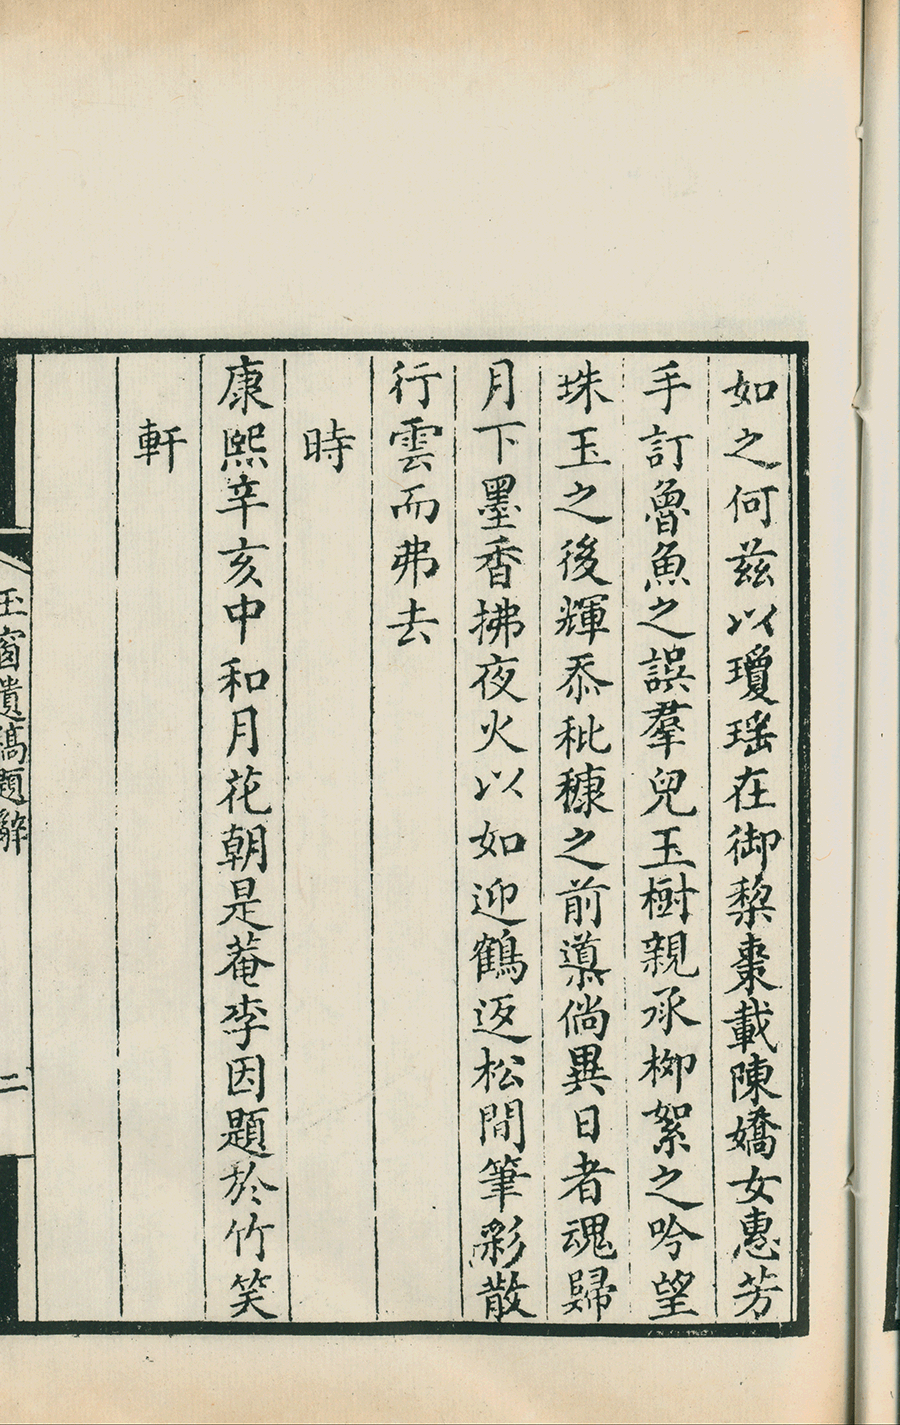 如之何茲以瓊瑤在御棃棗載陳嬌女惠芳
手訂魯魚之誤羣兒玉樹親承栁絮之吟望
珠玉之後輝忝秕穅之前導倘異日者魂歸
月下墨香拂夜火以如迎鶴返松間筆彩散
行雲而弗去
時
康熙辛亥中和月花朝是菴李因題於竹笑
軒
玉窗遺稿題辭
二